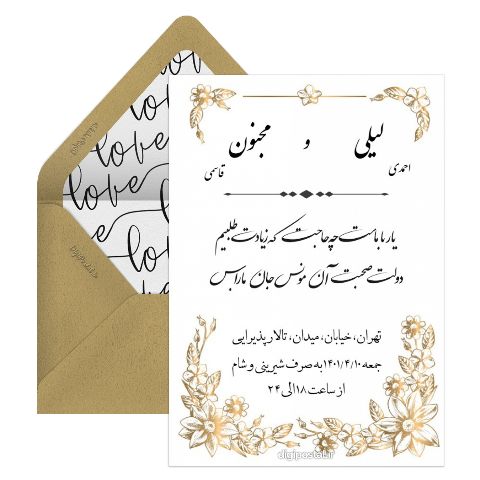 لیلی و مجنون
احمدی قاسمی
یار با ماست چه حاجت که زیادت طلبیم
دولت صحبت آن مونس جان ما را بس
تهران، خیابان، میدان، تالار پذیرایی
جمعه ۱۴۰۱/۴/۱۰ به صرف شیرینی و شام
از ساعت ۱۸ الی ۲۴
digipostal.ir
love
love
love
love
love
DigiPostal.ir
DigiPostal.ir